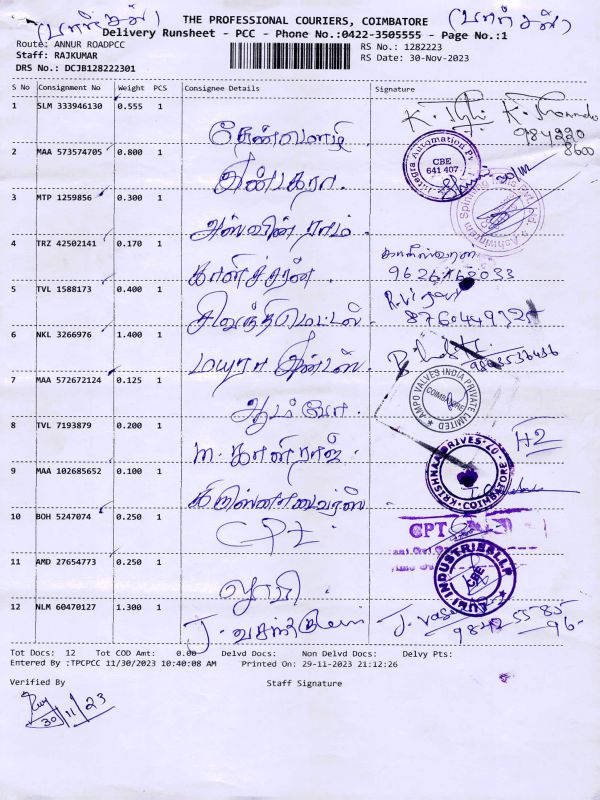 (பார்சல்) THE PROFESSIONAL COURIERS, COIMBATORE (பார்சல்)
Delivery Runsheet - PCC - Phone No.:0422-3505555 - Page No.:1
Route: ANNUR ROADPCC RS No.: 1282223
Staff: RAJKUMAR RS Date: 30-Nov-2023
DRS No.: DCJB128222301
S No Consignment No Weight PCS Consignee Details Signature
1 SLM 333946130 0.555 1
984220
8600
தேன்மொழி
2 MAA 573574705 0.800 1
Integra Automation Pv
CBE
641 407
3 MTP 1259856 0.300 1
Ashwinram Spinning India Pvt. Ltd.
அஸ்வின் ராம்
4 TRZ 42502141 0.170 1
காளீஸ்வரன்
5 TVL 1588173 0.400 1
சிவந்திமெட்டல்
6 NKL 3266976 1.400 1
மயூரா
7 MAA 572672124 0.125 1
AMPO VALVES INDIA PRIVATE LIMITED
COIMBATORE
ஆம்போ
8 TVL 7193879 0.200 1
H2
m. காளிராஜ்
9 MAA 102685652 0.100 1
KRISHNAA DRIVES
COIMBATORE
10 BOH 5247074 0.250 1
CPT CPT
11 AMD 27654773 0.250 1
INDUSTRIES LLP
CBE
12 NLM 60470127 1.300 1
J. J.
9842 55 85
96-
Tot Docs: 12 Tot COD Amt: 0.00 Delvd Docs: Non Delvd Docs: Delvy Pts:
Entered By :TPCPCC 11/30/2023 10:40:08 AM Printed On: 29-11-2023 21:12:26
Verified By Staff Signature
30/11/23